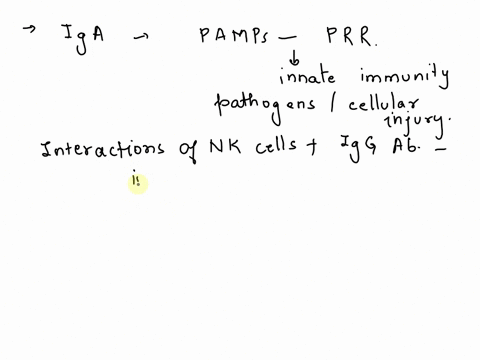 → IgA → PAMPs — PRR.
↓
innate immunity
pathogens / cellular
injury.
Interactions of NK cells + IgG Ab. —
i